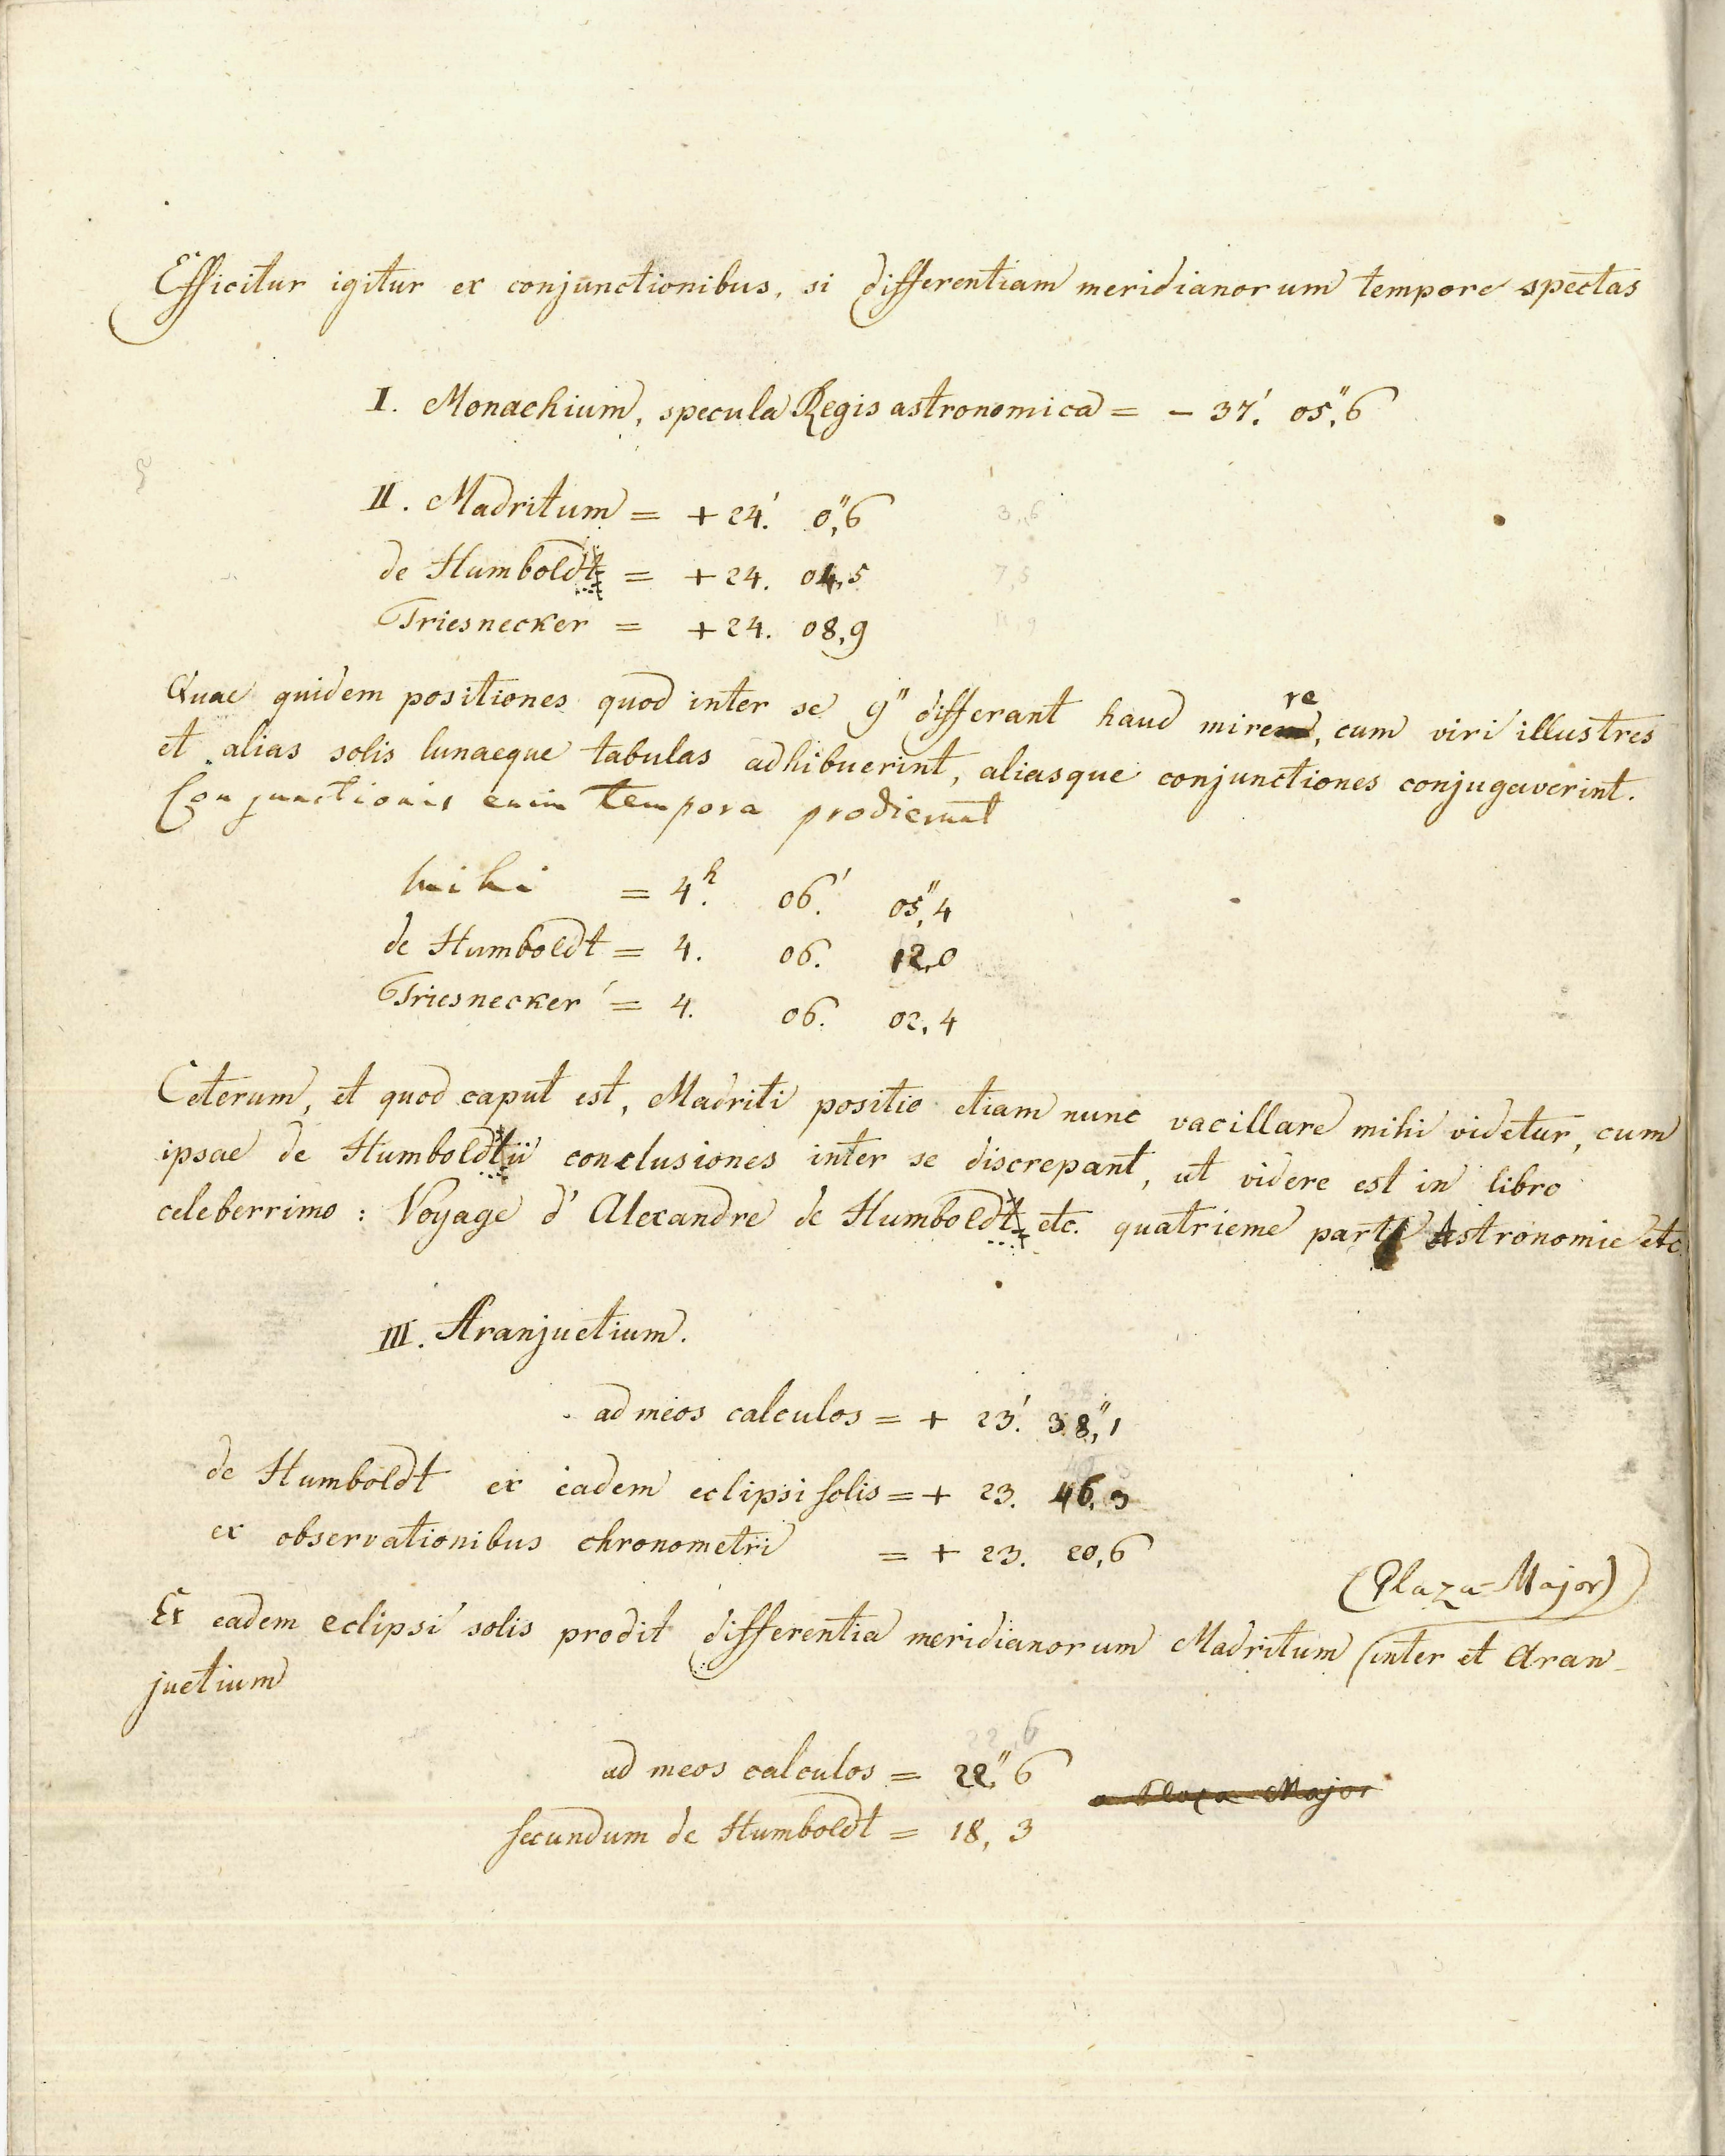 Efficitur igitur ex conjunctionibus, si differentiam meridianorum tempore spectas
I. Monachium, specula Regis astronomica = - 37.' 05,"6
II. Madritum = + 24.' 0,"6
3,,6
de Humboldt = + 24. 04,5
7,5
Triesnecker = + 24. 08,9
11,9
Quae quidem positiones quod inter se 9" differant haud mirere, cum viri illustres
et alias solis lunaeque tabulas adhibuerint, aliasque conjunctiones conjugaverint.
Conjunctionis enim tempora prodierunt
mihi = 4.h 06.' 05,"4
de Humboldt = 4. 06. 12,0
Triesnecker = 4. 06. 02,4
Ceterum, et quod caput est, Madriti positio etiam nunc vacillare mihi videtur, cum
ipsae de Humboldtii conclusiones inter se discrepant, ut videre est in libro
celeberrimo : Voyage d' Alexandre de Humboldt etc. quatrieme part Astronomie etc.
III. Aranjuetium.
ad meos calculos = + 23.' 38,"1
de Humboldt ex eadem eclipsi solis = + 23. 46,3
ex observationibus chronometri = + 23. 20,6
(Plaza-Major)
Ex eadem eclipsi solis prodit differentia meridianorum Madritum inter et Aran-
juetium
22,6
ad meos calculos = 22,"6
a Plaça Major
secundum de Humboldt = 18, 3